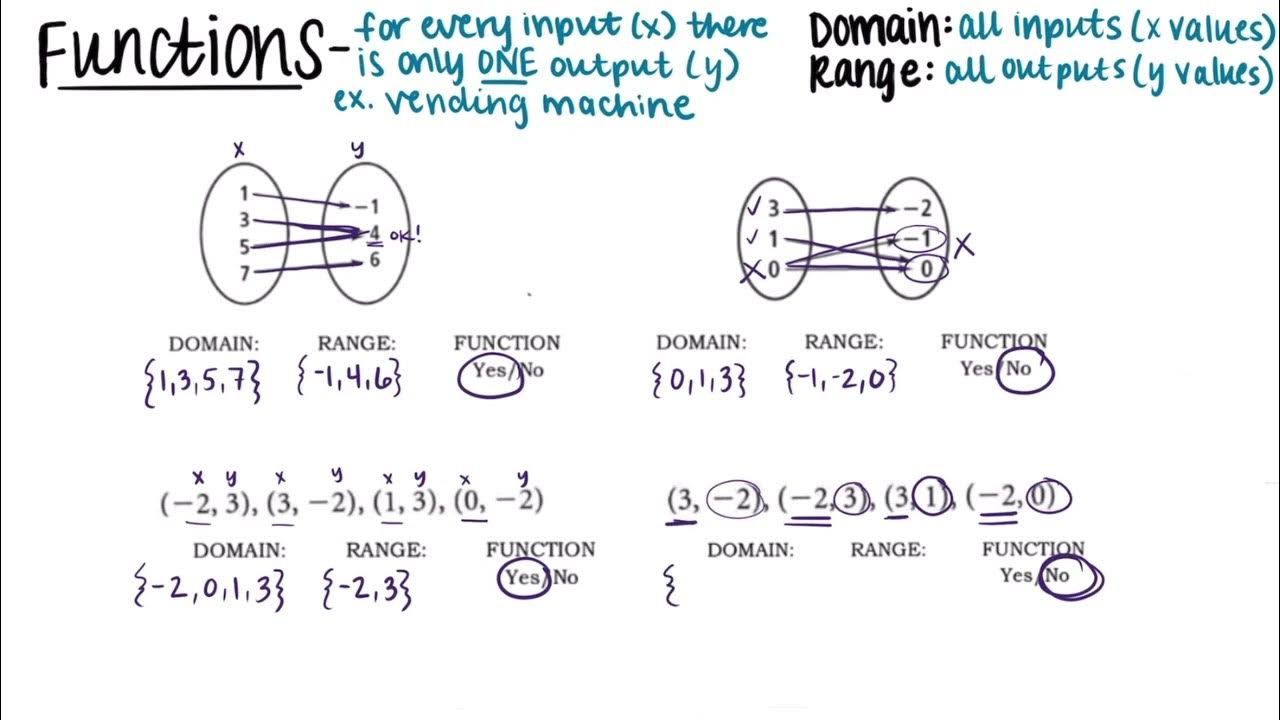 Functions - for every input (x) there
is only ONE output (y)
ex. vending machine
Domain: all inputs (x values)
Range: all outputs (y values)
x y
1 -1
3 4 OK!
5 6
7
✓ 3 -2
✓ 1 -1 X
X 0 0
DOMAIN: RANGE: FUNCTION
{1,3,5,7} {-1,4,6} Yes/No
DOMAIN: RANGE: FUNCTION
{0,1,3} {-1,-2,0} Yes/No
x y x y x y x y
(−2, 3), (3, −2), (1, 3), (0, −2)
DOMAIN: RANGE: FUNCTION
{-2,0,1,3} {-2,3} Yes/No
(3, −2), (−2, 3), (3, 1), (−2, 0)
DOMAIN: RANGE: FUNCTION
{ Yes/No